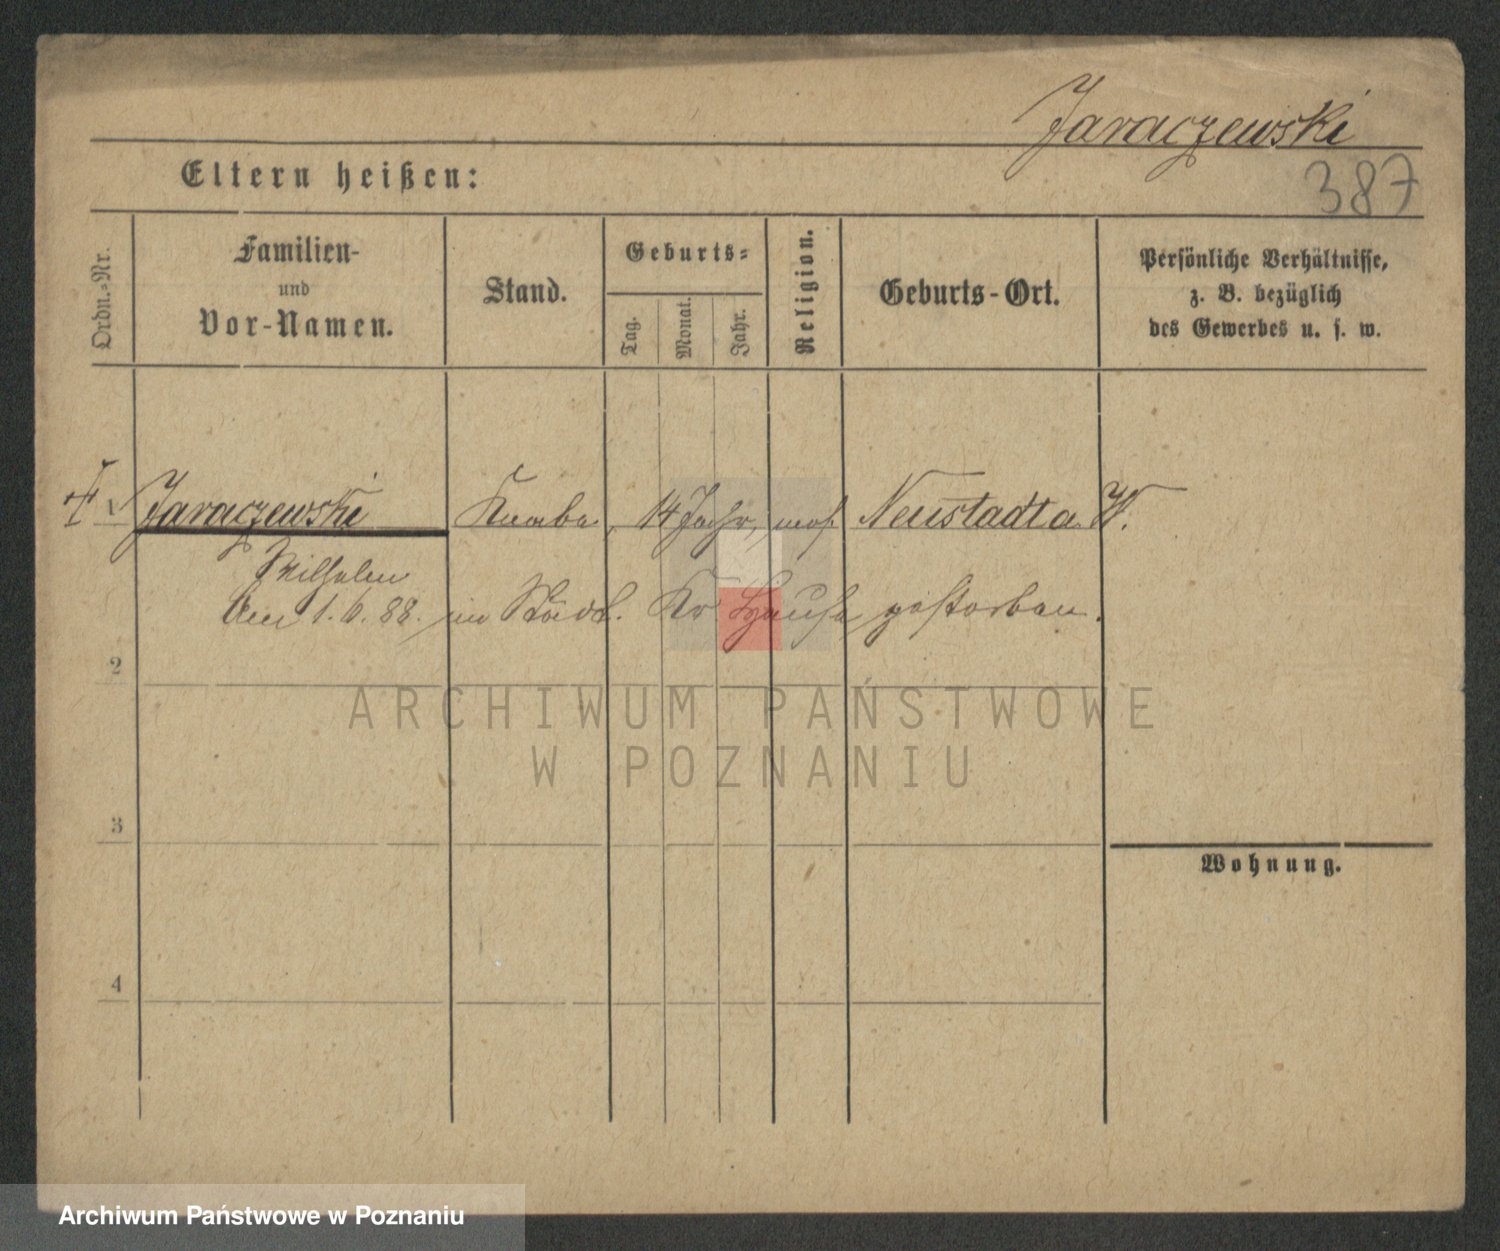 Jaraczewski
387
Eltern heißen:
Ordn.-Nr.
Familien-
und
Vor-Namen.
Stand.
Geburts-
Tag.
Monat.
Jahr.
Religion.
Geburts-Ort.
Persönliche Verhältnisse,
z. B. bezüglich
des Gewerbes u. s. w.
1 Jaraczewski Knabe, 14 Jahr, mos. Neustadt a W.
Wilhelm
Am 1. 6. 88. im Städt. Kr Hause gestorben.
2
ARCHIWUM PAŃSTWOWE
W POZNANIU
3
Wohnung.
4
Archiwum Państwowe w Poznaniu